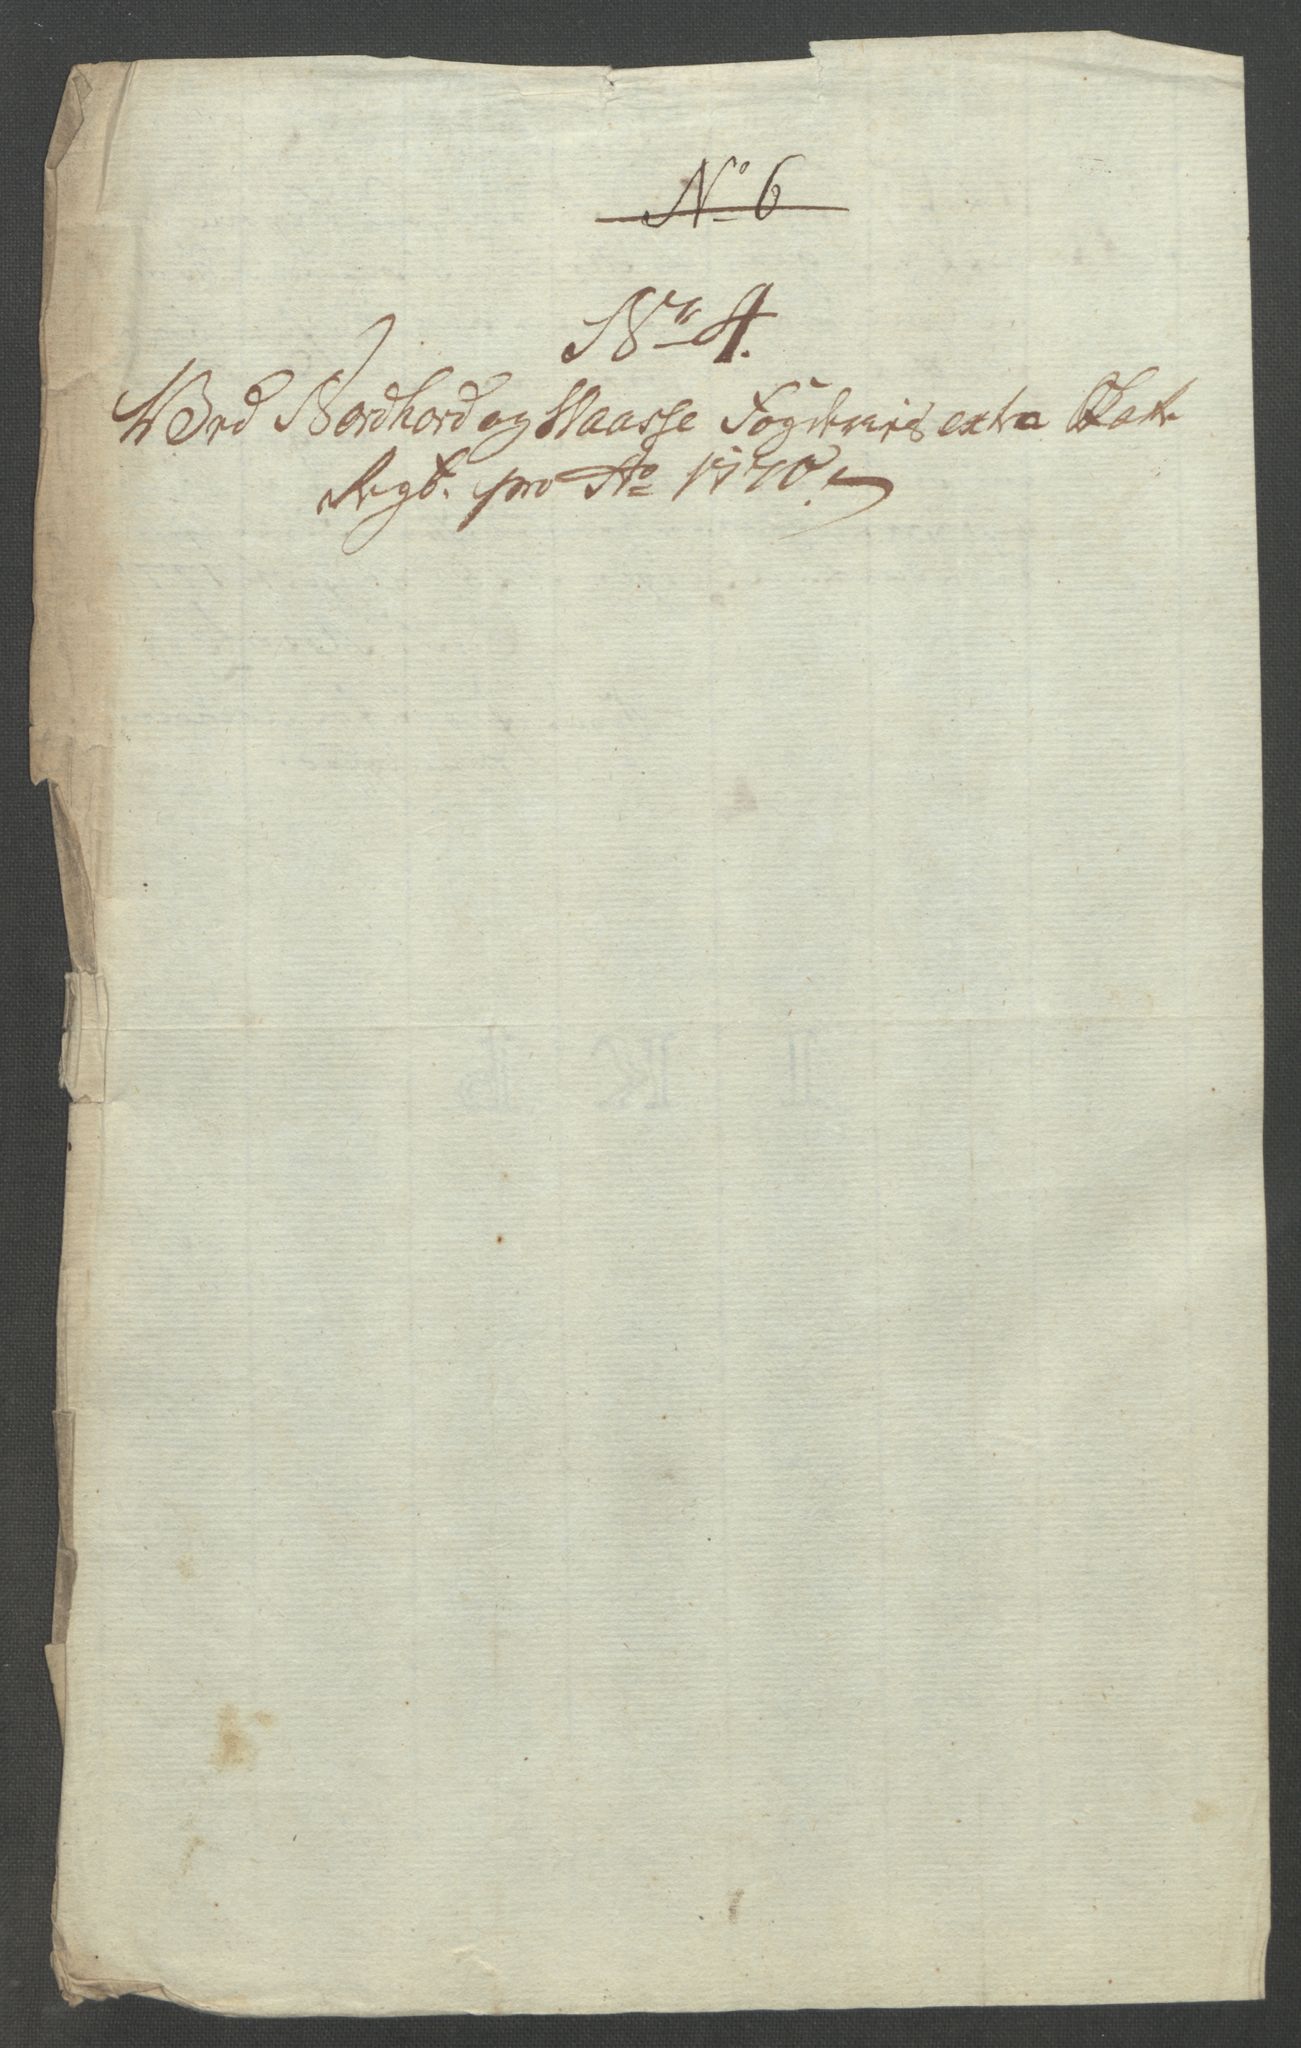 No 6
Nr 4.
Wed Nordhord og Waasse Fogderies extra Skatt
Regb. pro Ao 1770.